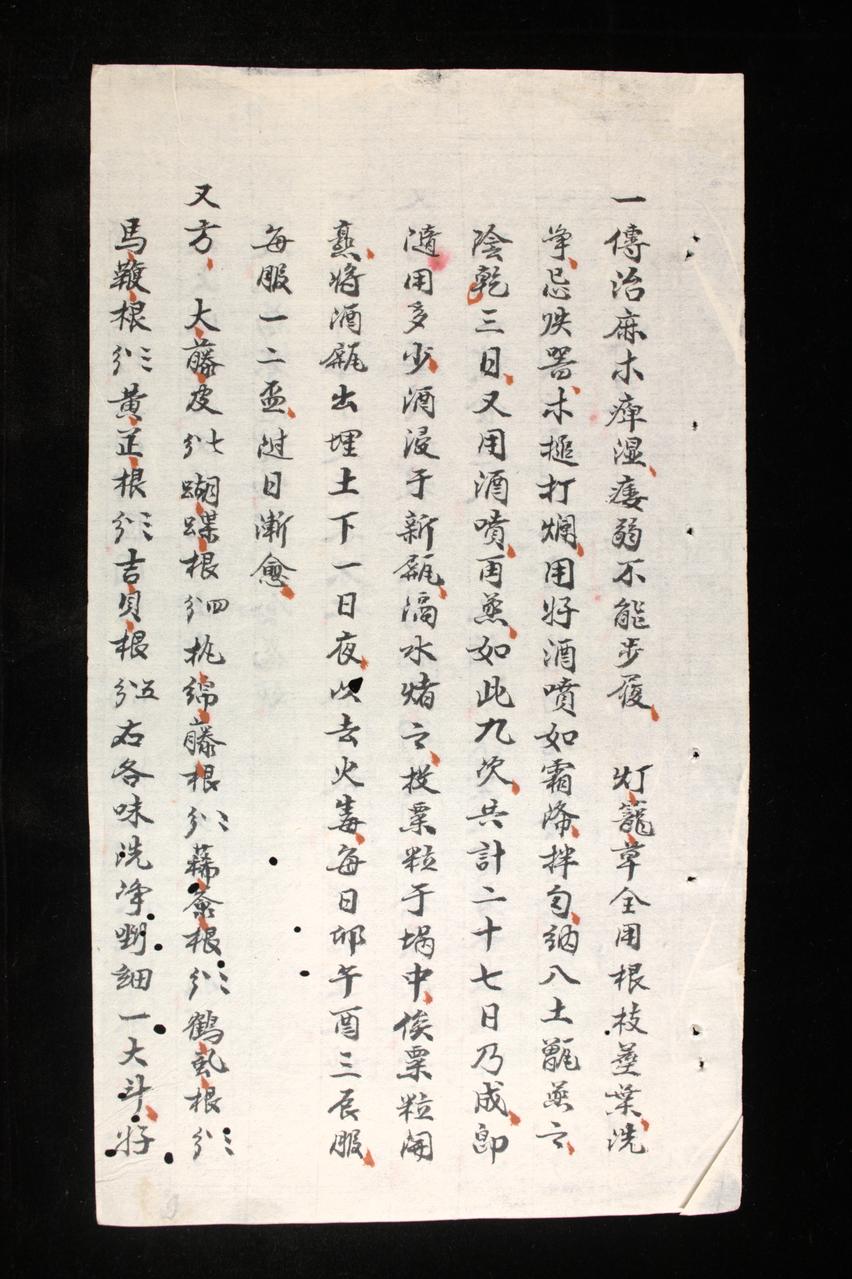 一傳治麻木痺湿痿弱不能步履 灯籠草全用根枝莖葉洗
净忌鉄器木搥打爛用好酒噴如霜降拌匀納入土甑蒸之
陰乾三日又用酒噴再蒸如此九次共計二十七日乃成即
隨用多少酒浸于新瓶隔水煮之投粟粒于堝中俟粟粒開
熟將酒瓶出埋土下一日夜以去火毒每日卯午酉三辰服
每服一二盃附日漸愈
又方 大藤皮分七蝴蝶根分四枕綿藤根分二蕛根分三鶴虱根分三
馬鞭根分三黃芷根分三吉貝根分五右各味洗净剉細一大斗好